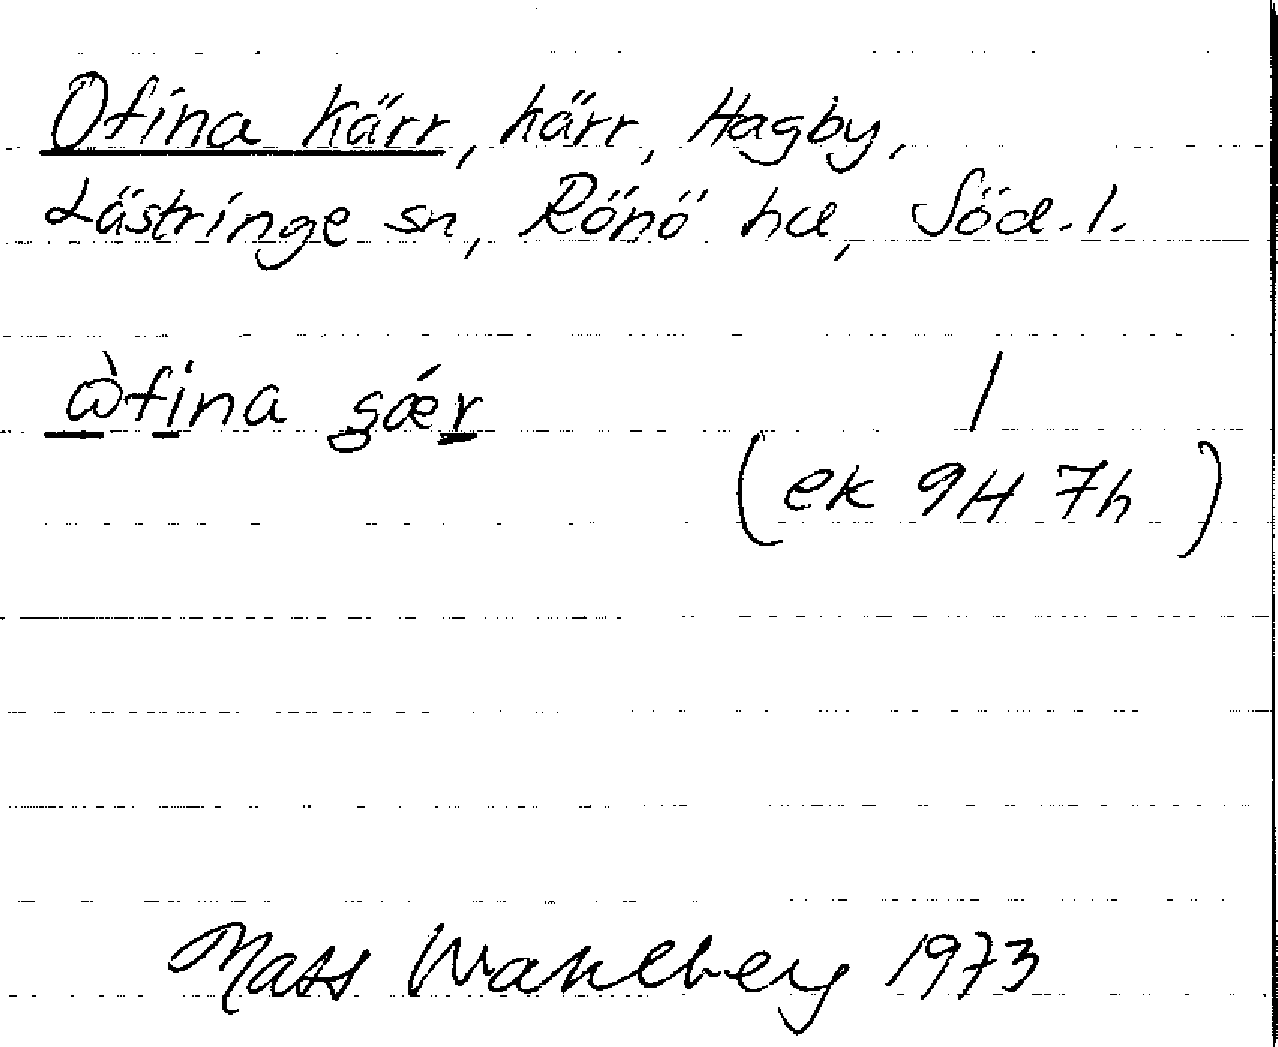 Ofina Kärr, kärr, Hagby,
Lästringe sn, Rönö hd, Söd. l.
ɷ̀fina gǽr
/
(ek 9H 7h)
Mats Wahlberg 1973